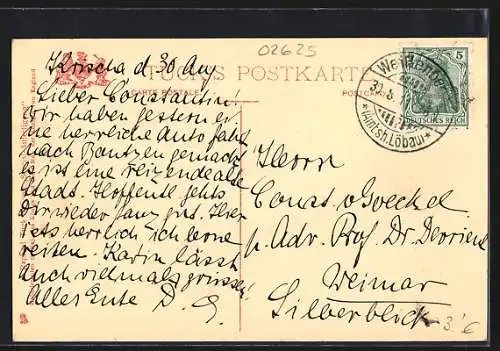 02625
TUCK'S POSTKARTE
CARTE POSTALE
POSTCARD
5
DEUTSCHES REICH
(Amtsh. Löbau)
Krischa d 30 Aug
Lieber Constantin!
wir haben gestern ei
ne herrliche Autofahrt
nach Bautzen gemacht
es ist eine reizende alte
Stadt. Hoffentl. gehts
Dir wieder ganz gut. Hier
ists herrlich ich lerne
reiten. Karin lässt
auch vielmals grüssen
Alles Gute D. G.
Herrn
Const. v Goeckel
p. Adr. Prof. Dr. Devrient
Weimar
Silberblick